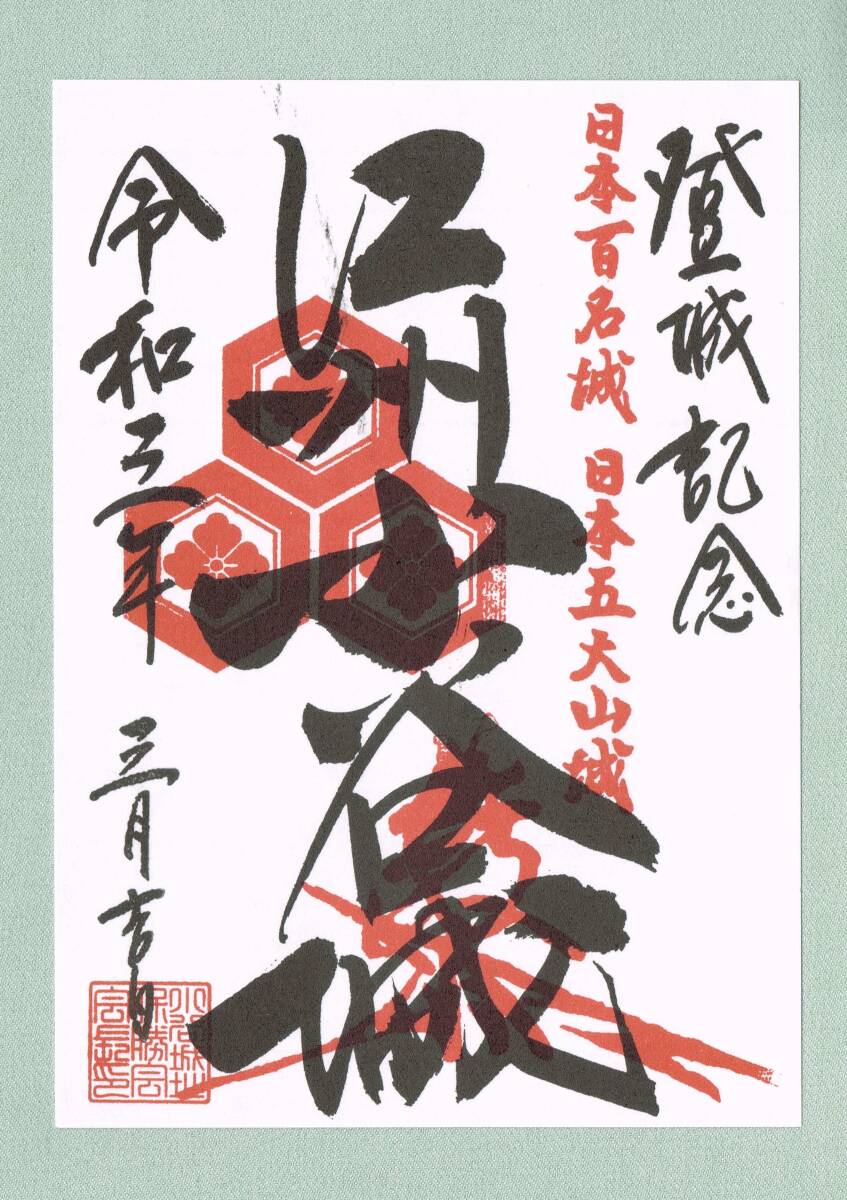 登城記念
日本百名城 日本五大山城
江州小谷城
令和三年 三月吉日
小谷城址
保勝会